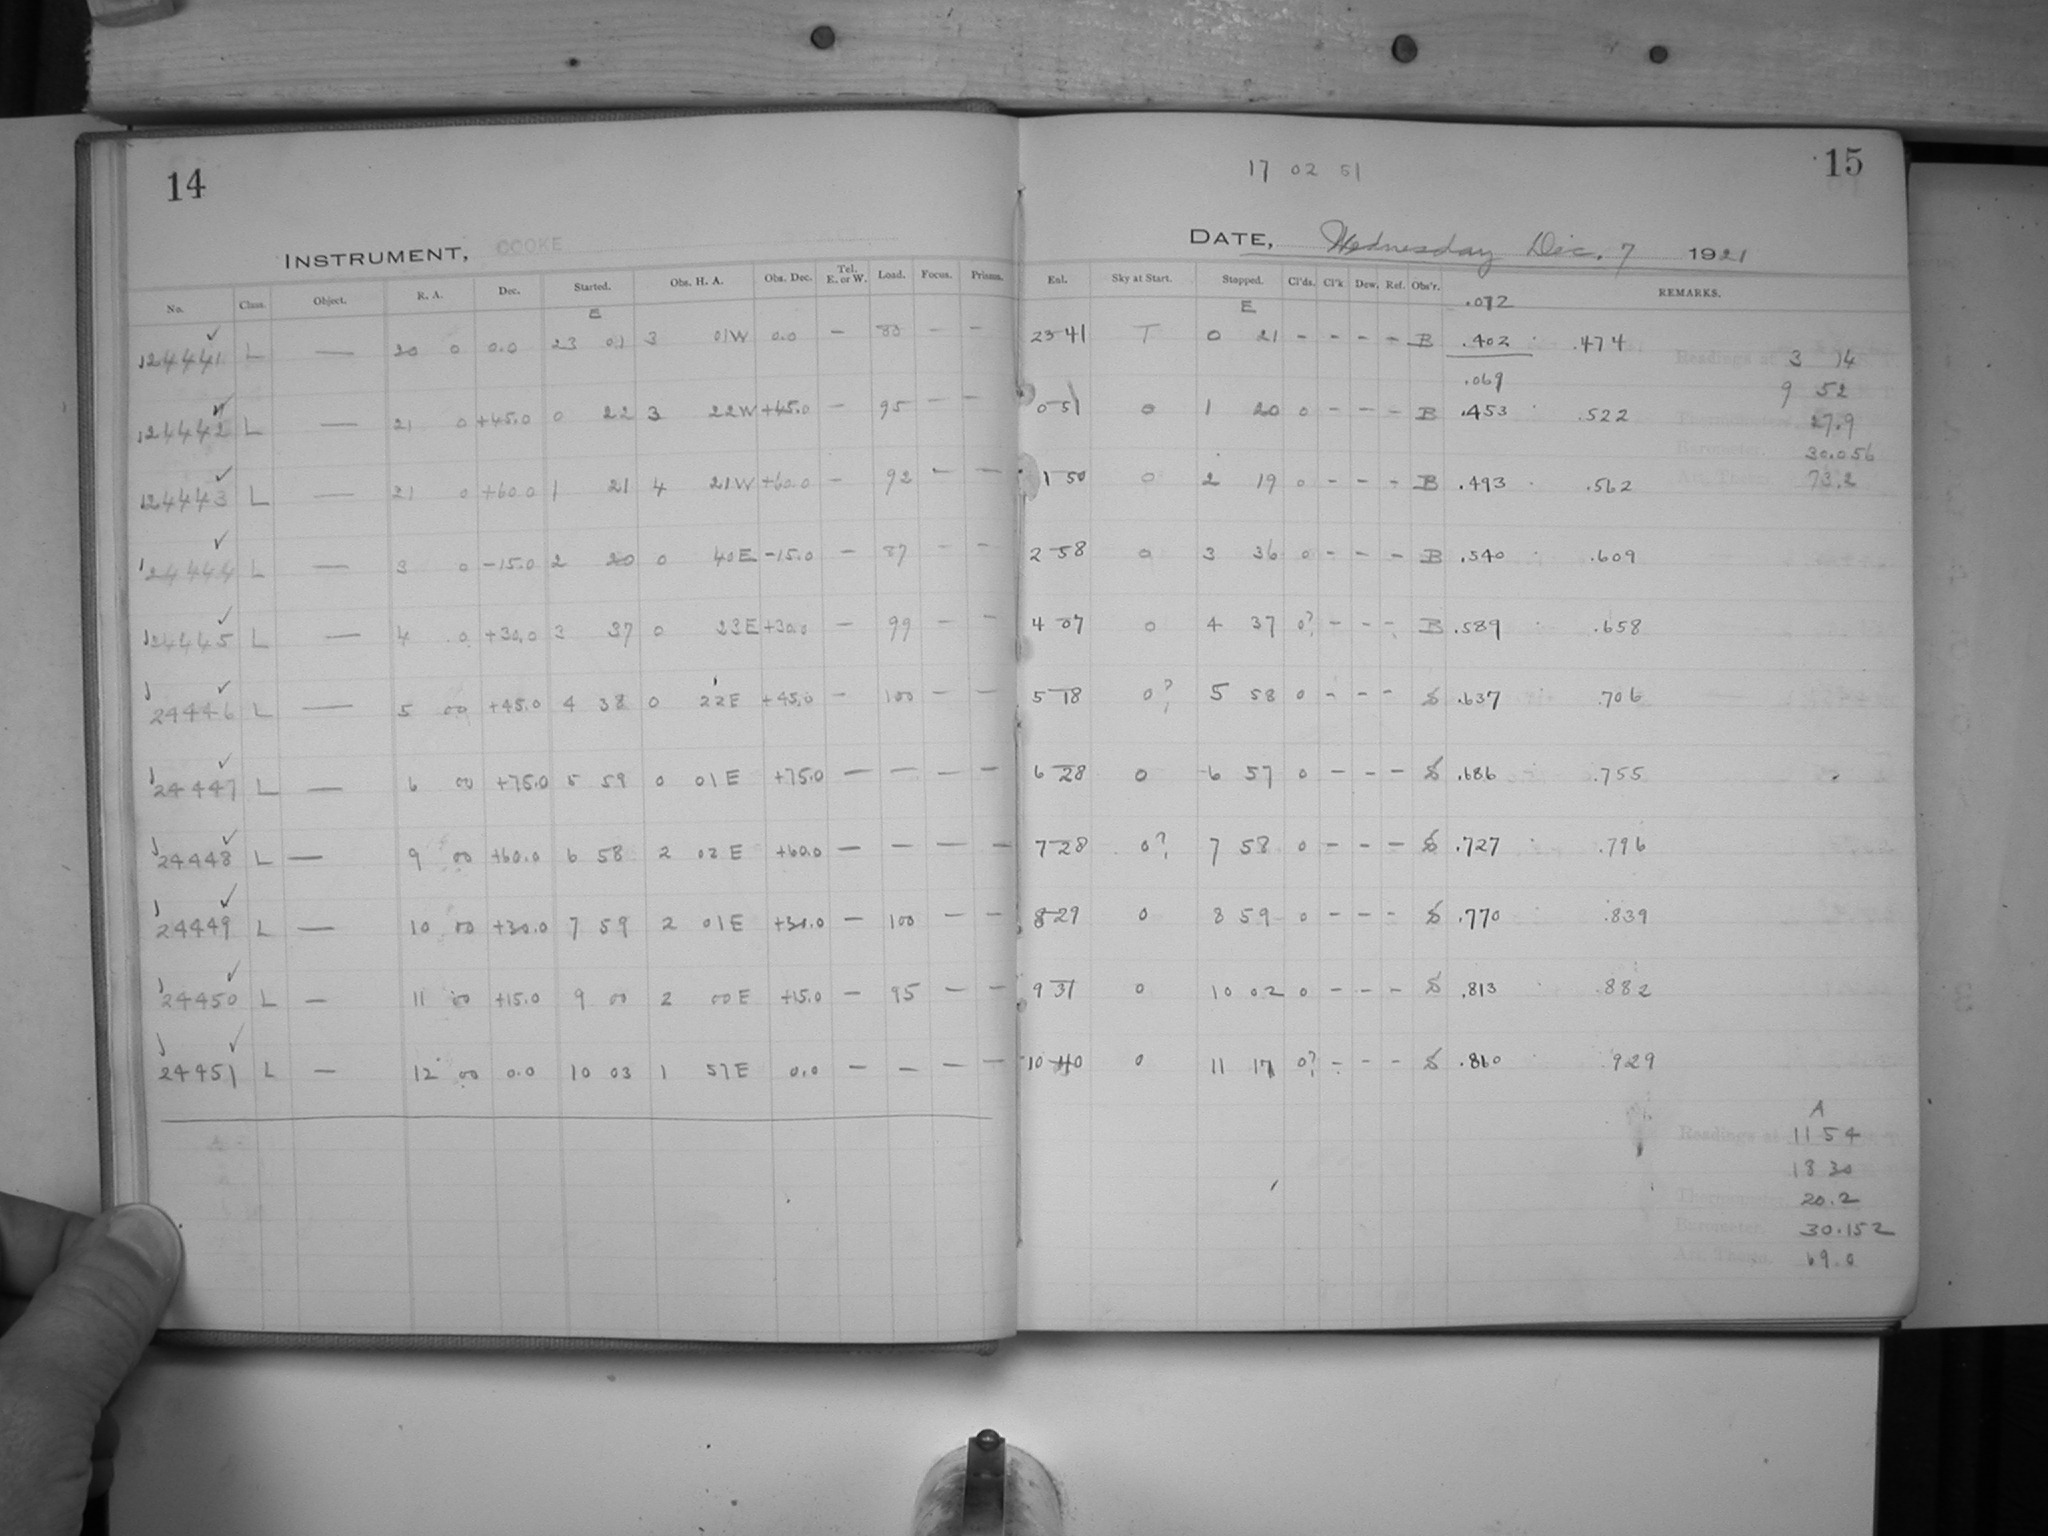 14
INSTRUMENT, COOKE
No. Class. Object. R. A. Dec. Started. Obs. H. A. Obs. Dec. Tel. E. or W. Load. Focus. Prisms.
E
24441 L — 20 0 0.0 23 01 3 01W 0.0 — 80 — —
24442 L — 21 0 +45.0 0 22 3 22W +45.0 — 95 — —
24443 L — 21 0 +60.0 1 21 4 21W +60.0 — 92 — —
24444 L — 3 0 -15.0 2 20 0 40E -15.0 — 87 — —
24445 L — 4 0 +30.0 3 37 0 23E +30.0 — 99 — —
24446 L — 5 00 +45.0 4 38 0 22E +45.0 — 100 — —
24447 L — 6 00 +75.0 5 59 0 01E +75.0 — — — —
24448 L — 9 00 +60.0 6 58 2 02E +60.0 — — — —
24449 L — 10 00 +30.0 7 59 2 01E +30.0 — 100 — —
24450 L — 11 00 +15.0 9 00 2 00E +15.0 — 95 — —
24451 L — 12 00 0.0 10 03 1 57E 0.0 — — — —
15
17 02 51
DATE, Wednesday Dec. 7 1921
Enl. Sky at Start. Stopped. Cl'ds. Cl'k Dew. Ref. Obs'r. REMARKS.
E .072
23 41 T 0 21 - - - - B .402 .474
.069
0 51 0 1 20 0 - - - B .453 .522
1 50 0 2 19 0 - - - B .493 .562
2 58 0 3 36 0 - - - B .540 .609
4 07 0 4 37 0? - - - B .589 .658
5 18 0? 5 58 0 - - - S .637 .706
6 28 0 6 57 0 - - - S .686 .755
7 28 0? 7 58 0 - - - S .727 .796
8 29 0 8 59 0 - - - S .770 .839
9 31 0 10 02 0 - - - S .813 .882
10 40 0 11 17 0? - - - S .860 .929
Readings at 3 14
9 52
Thermometer. 27.9
Barometer. 30.056
Att. Th 73.2
A
Readings at 11 54
18 30
Thermometer. 20.2
Barometer. 30.152
Att. Therm. 69.0